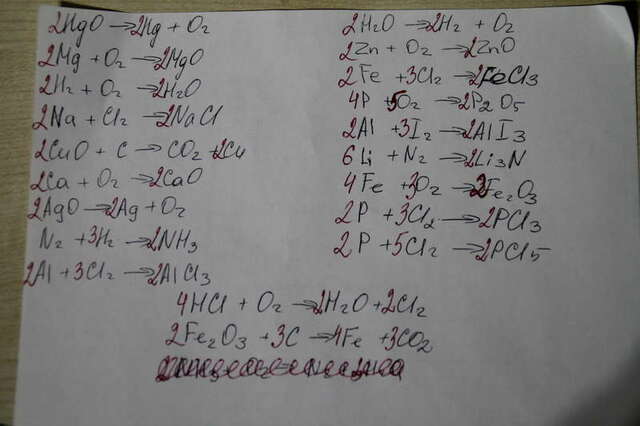 2HgO → 2Hg + O₂
2Mg + O₂ → 2MgO
2H₂ + O₂ → 2H₂O
2Na + Cl₂ → 2NaCl
2CuO + C → CO₂ + 2Cu
2Ca + O₂ → 2CaO
2AgO → 2Ag + O₂
N₂ + 3H₂ → 2NH₃
2Al + 3Cl₂ → 2AlCl₃
2H₂O → 2H₂ + O₂
2Zn + O₂ → 2ZnO
2Fe + 3Cl₂ → 2FeCl₃
4P + 5O₂ → 2P₂O₅
2Al + 3I₂ → 2AlI₃
6Li + N₂ → 2Li₃N
4Fe + 3O₂ → 2Fe₂O₃
2P + 3Cl₂ → 2PCl₃
2P + 5Cl₂ → 2PCl₅
4HCl + O₂ → 2H₂O + 2Cl₂
2Fe₂O₃ + 3C → 4Fe + 3CO₂